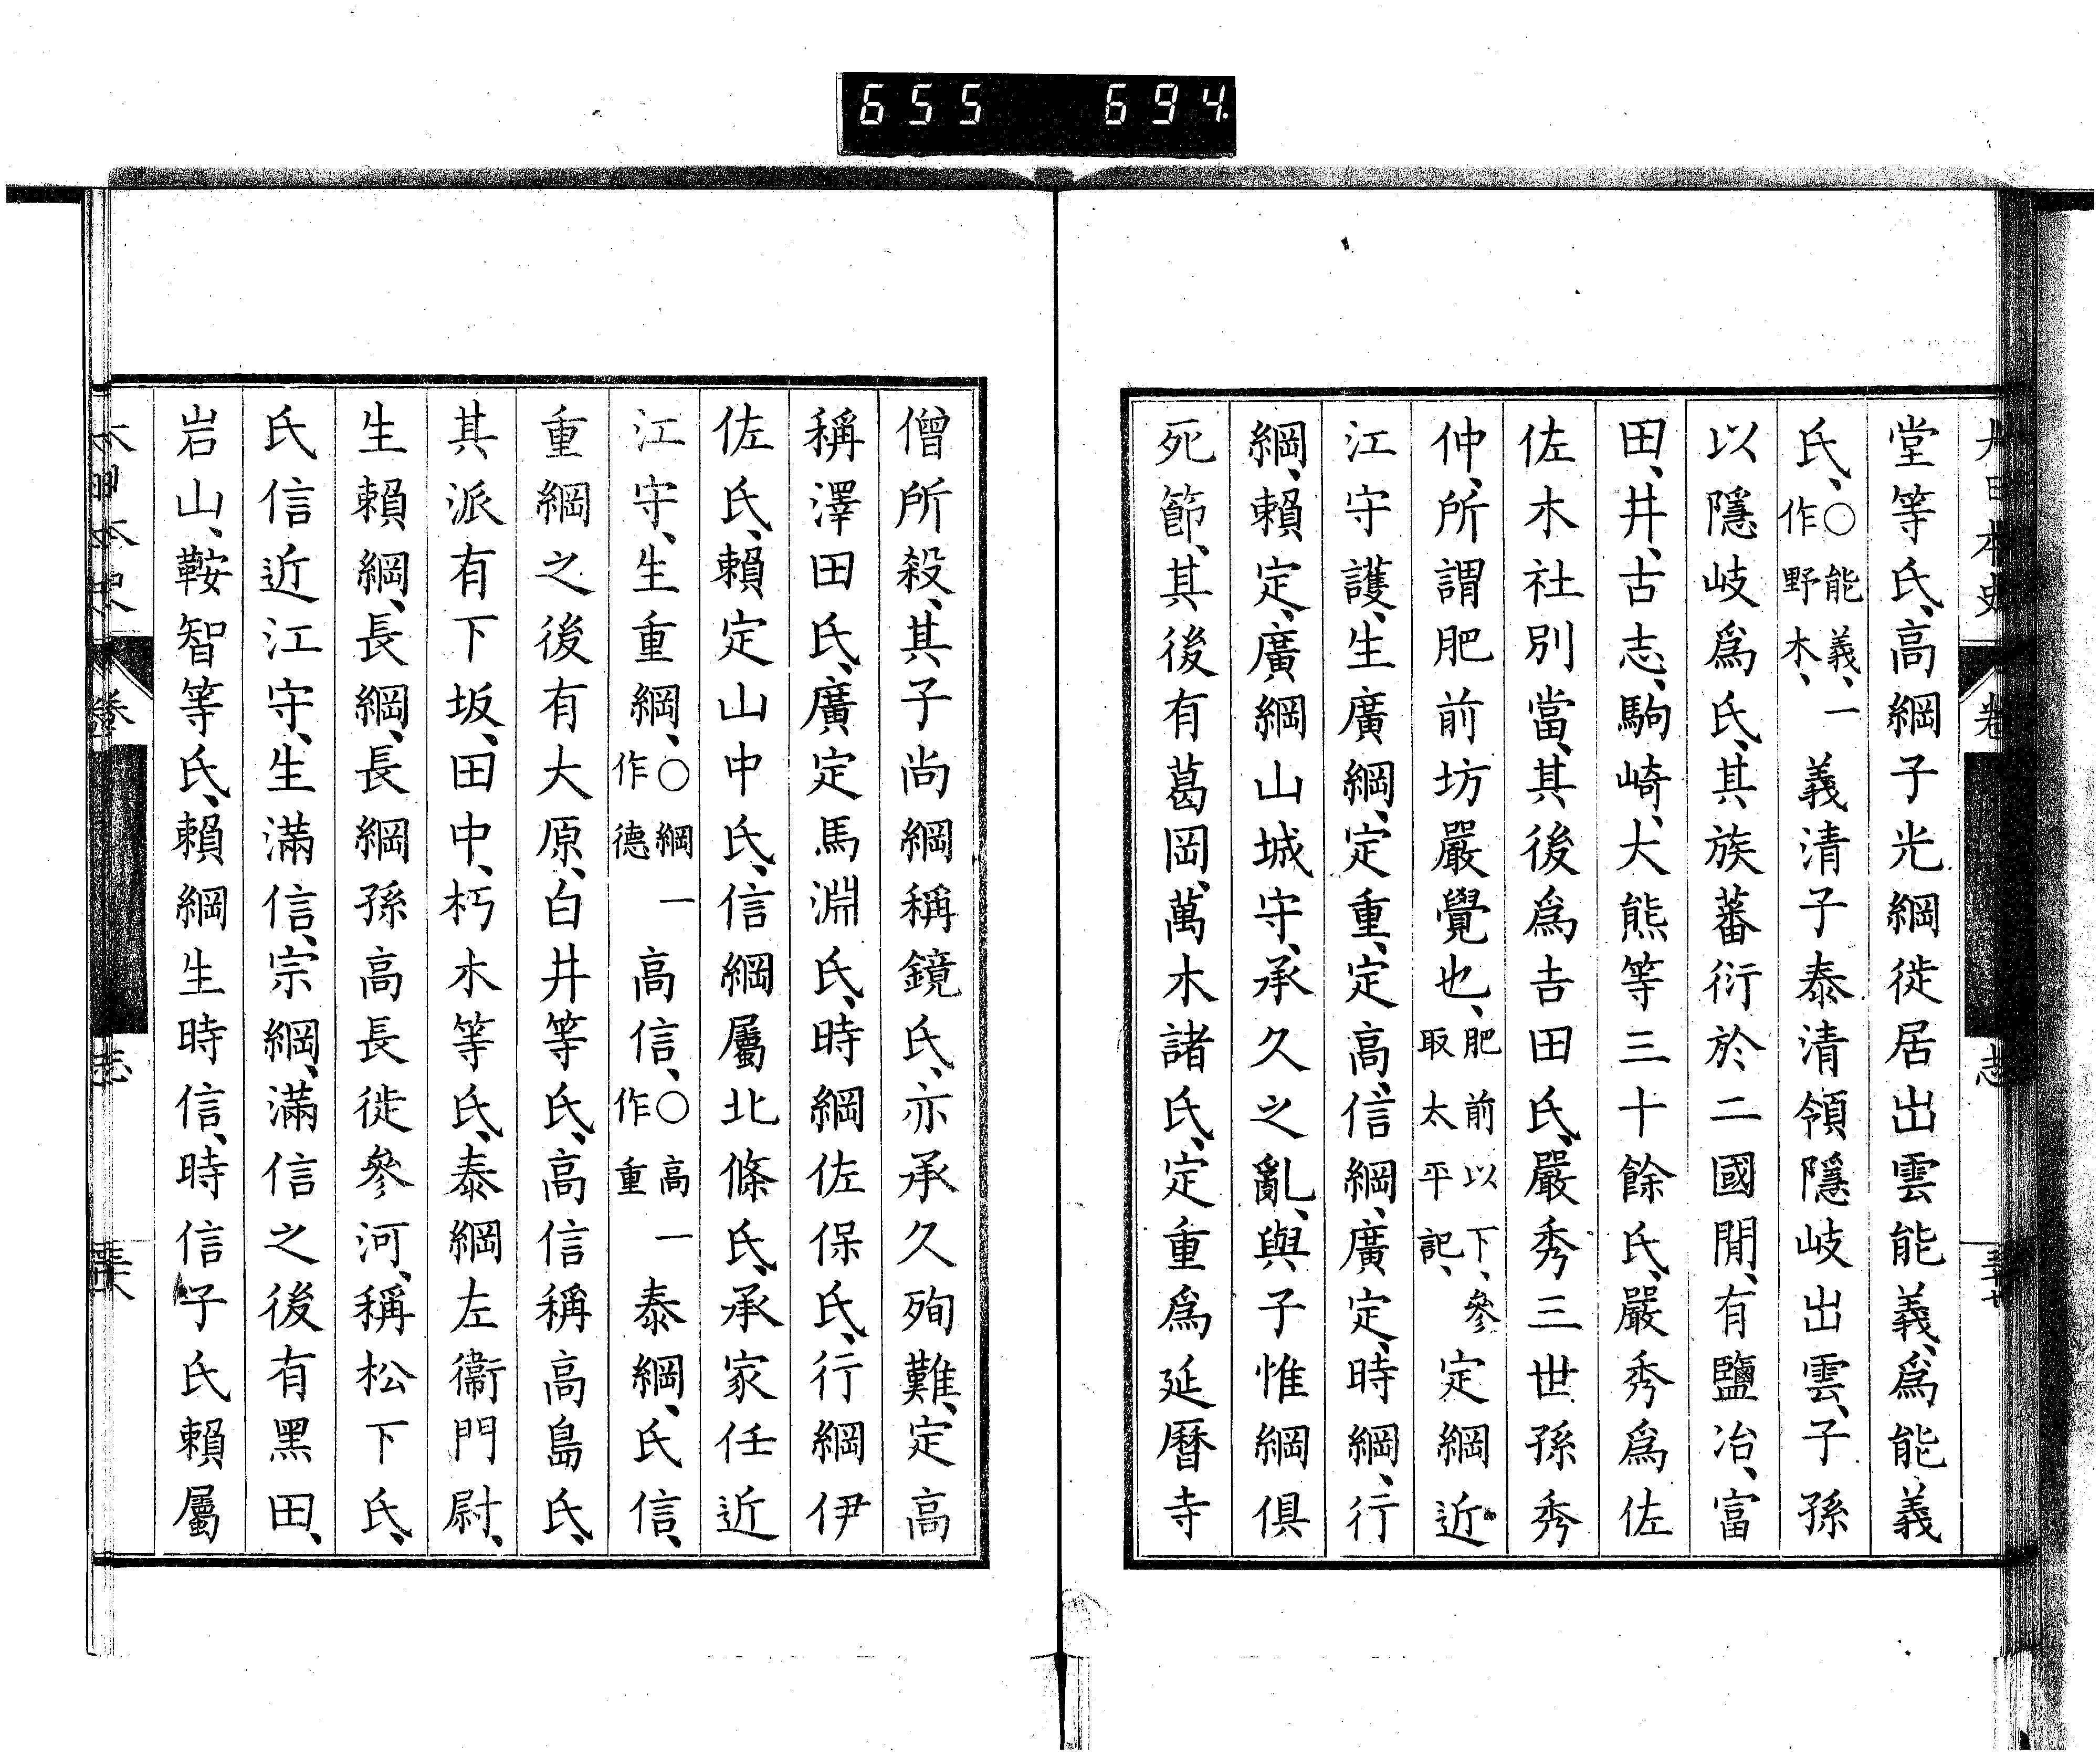 655 694
堂等氏、高綱子光綱徙居出雲能義、爲能義
氏、○能義、一作野木、義清子泰清領隱岐出雲、子孫
以隱岐爲氏、其族蕃衍於二國閒、有鹽冶、富
田、井、古志、駒崎、大熊等三十餘氏、嚴秀爲佐
佐木社別當、其後爲吉田氏、嚴秀三世孫秀
仲、所謂肥前坊嚴覺也、肥前以下、參取太平記、定綱近
江守護、生廣綱、定重、定高、信綱、廣定、時綱、行
綱、賴定、廣綱山城守、承久之亂、與子惟綱俱
死節、其後有葛岡、萬木諸氏、定重爲延曆寺
僧所殺、其子尚綱稱鏡氏、亦承久殉難、定高
稱澤田氏、廣定馬淵氏、時綱佐保氏、行綱伊
佐氏、賴定山中氏、信綱屬北條氏、承家任近
江守、生重綱、○綱一作德高信、○高一作重泰綱、氏信、
重綱之後有大原、白井等氏、高信稱高島氏、
其派有下坂、田中、朽木等氏、泰綱左衞門尉、
生賴綱、長綱、長綱孫高長徙參河、稱松下氏、
氏信近江守、生滿信、宗綱、滿信之後有黑田、
岩山、鞍智等氏、賴綱生時信、時信子氏賴屬